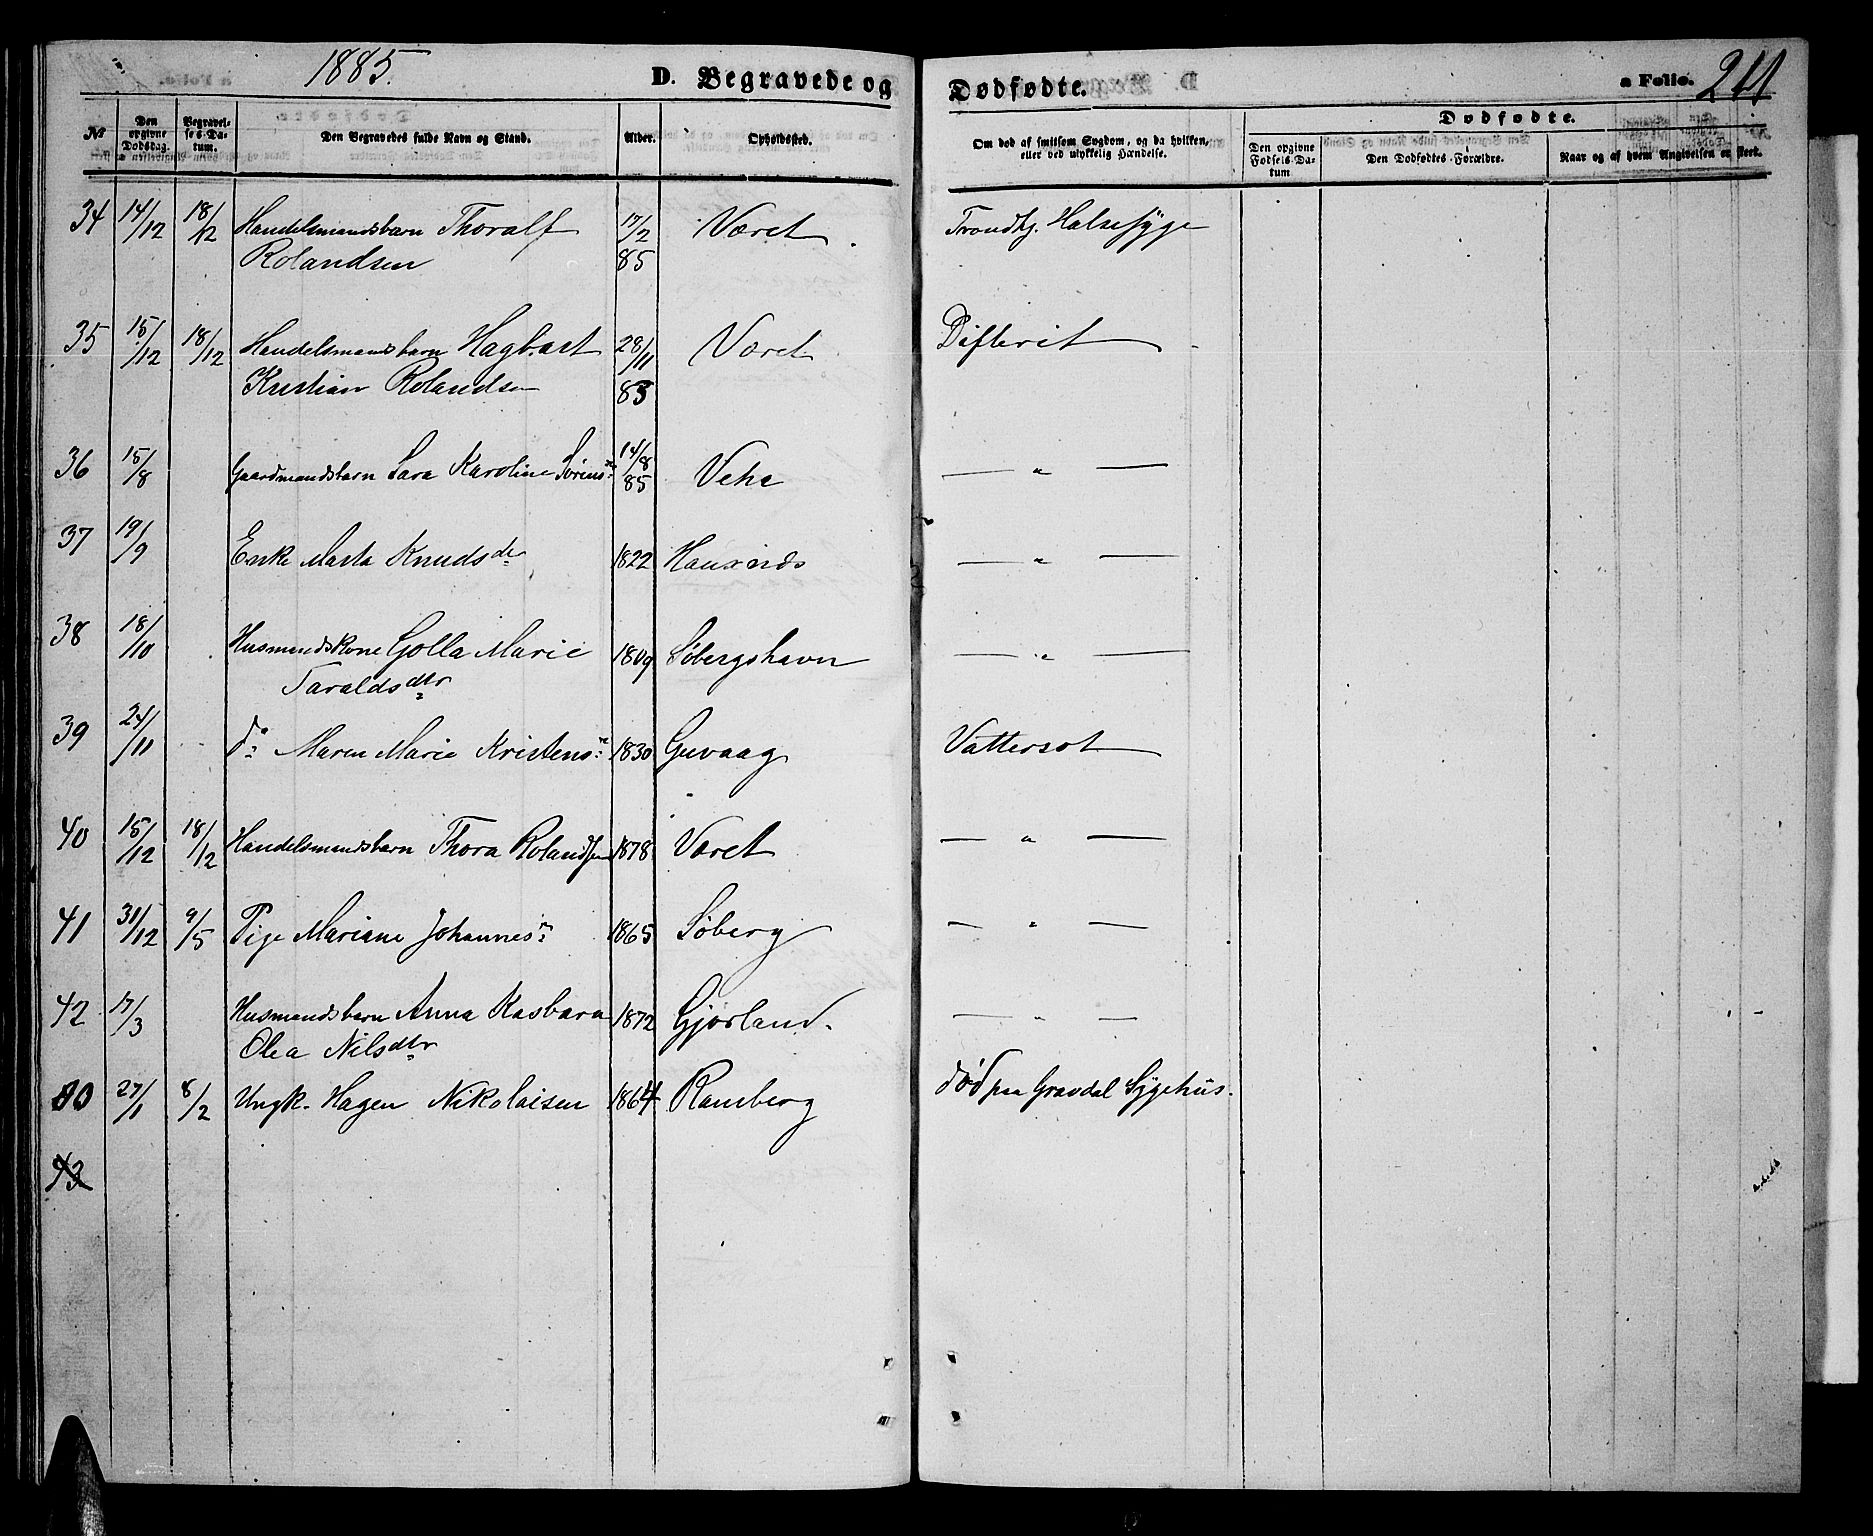 1885.
D. Begravede og Dødfødte.
a Folio. 211
№
Den opgivne Dødsdag.
Begravelses-Datum.
Den Begravedes fulde Navn og Stand.
Alder.
Opholdssted.
Om død af smitsom Sygdom, og da hvilken, eller ved ulykkelig Hændelse.
Dødfødte.
Den opgivne Fødsels-Datum
Den Dødfødtes Forældre.
Naar og af hvem Angivelsen er skeet.
34 14/12 18/12 Handelsmandsbarn Thoralf 17/2 Været Trondhj. Halsesyge
Rolandsen 85
35 15/12 18/12 Handelsmandsbarn Hagbart 28/11 Været Difterit
Kristian Rolandsen 83
36 15/8 Gaardmandsbarn Sara Karoline Sørens: 14/8 85 — " —
37 19/9 Enke Marta Knudsdr 1822 — " —
38 18/10 Husmandskone Golla Marie 1809 Søbergshavn — " —
Taraldsdtr
39 24/11 do Maren Marie Kristens: 1830 Guvaag Vattersot
40 15/12 18/12 Handelsmandsbarn Thora Rolandsen 1878 Været — " —
41 31/12 9/5 Pige Mariane Johannes: 1865 Søberg — " —
42 17/3 Husmandsbarn Anna Kasbara 1872 Gjørland. — " —
Olea Nilsdtr
27/1 8/2 Ungk. Hagen Nikolaisen 1864 Ramberg død paa Gravdal Sygehus.
43